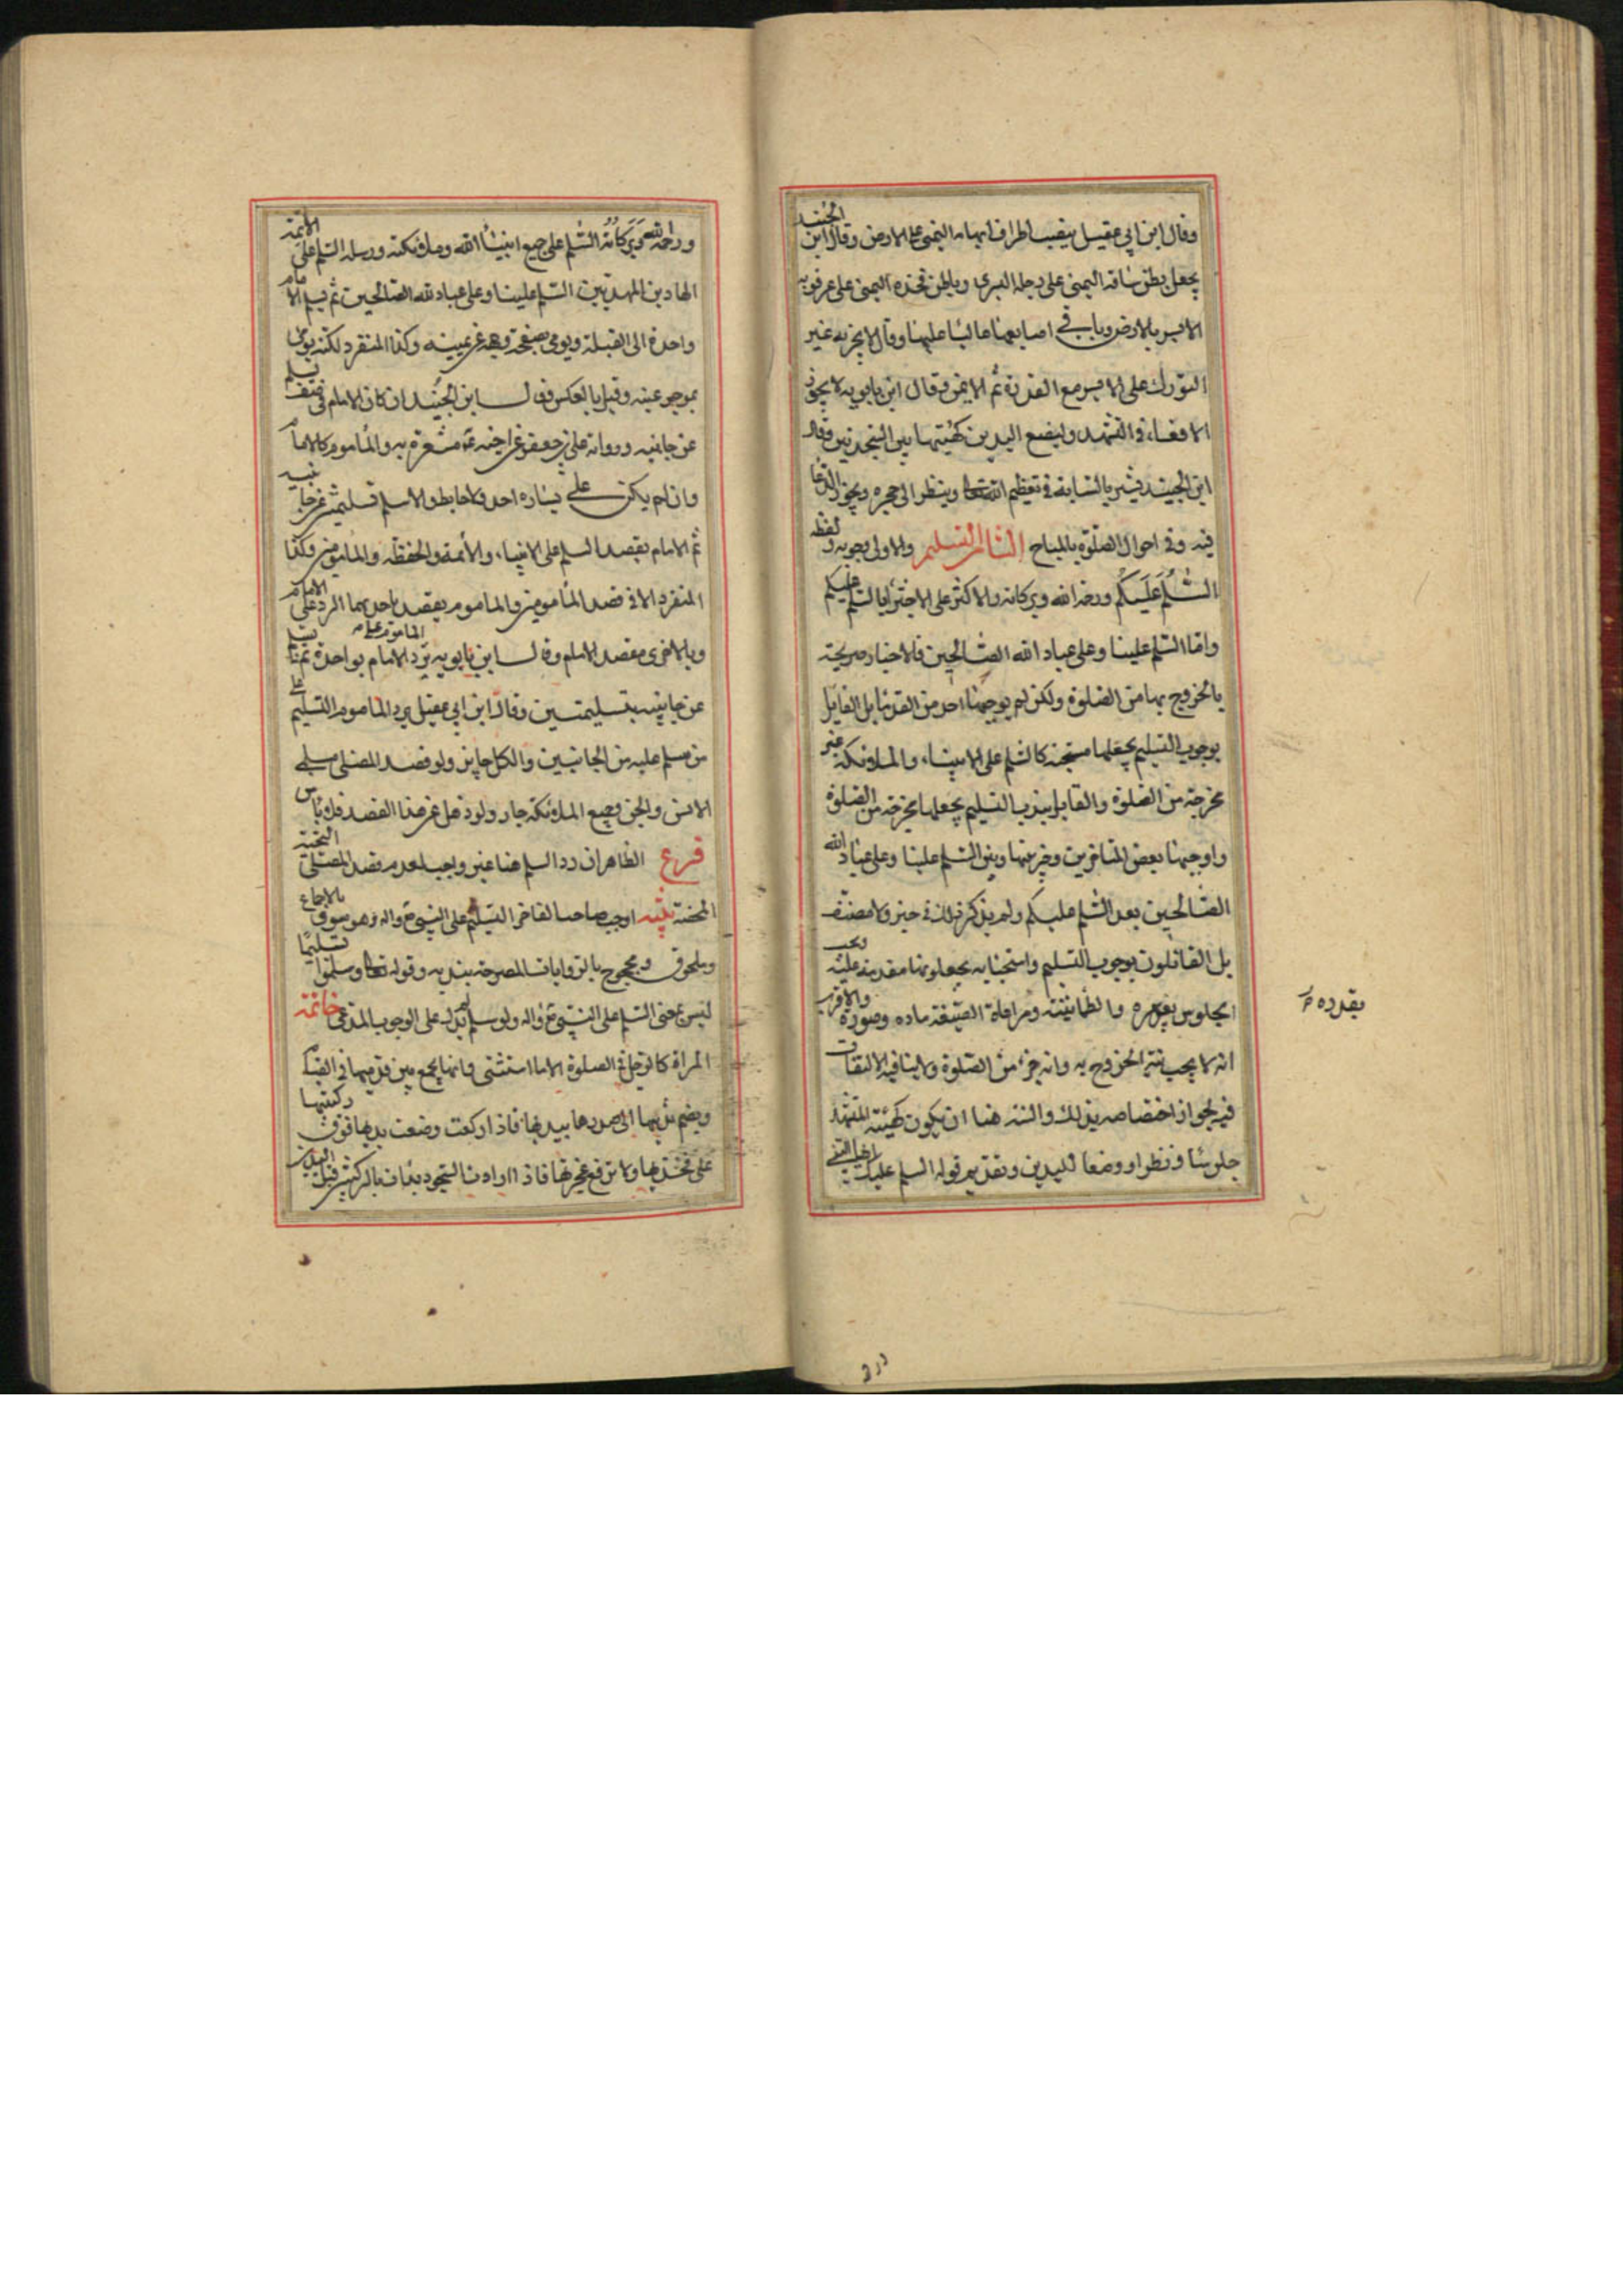 وقال ابن ابي عقيل ينصب اطراف ابهامه اليمنى على الارض وقال ابن الجنيد
يجعل بطن ساقه اليمنى على رجله اليسرى وباطن فخذه اليمنى على عرقوبه
الايسر بالارض وباقي اصابعهما عاليا عليها وقال لا يجزيه غير
التورك على الايسر مع القدرة ثم الايمن وقال ابن بابويه لا يجوز
الاقعاء في التشهد وليضع اليدين كهيئتها بين السجدتين وقال
ابن الجنيد فيشير بالسبابة في تعظيم الله تعالى وينظر الى حجره ويجوز الدعا
فيه وفي احوال الصلوة بالمباح الثامن التسليم والاولى وجوبه ولفظه
السلم عليكم ورحمة الله وبركاته والاكثر على الاجتزا بالسلم عليكم
واما السلم علينا وعلى عباد الله الصالحين فالاخبار صريحة
بالخروج بها من الصلوة ولكن لم يوجبها احد من القدما بل القايل
بوجوب التسليم يجعلها مستحبة كالسلم على الانبياء والملائكة غير
مخرجة من الصلوة والقايل بندب التسليم يجعلها مخرجة من الصلوة
واوجبها بعض المتاخرين وخير بينها وبين السلم علينا وعلى عباد الله
الصالحين بعد السلم عليكم ولم يذكر ذلك في خبر ولا مصنف
بل القائلون بوجوب التسليم واستحبابه يجعلونها مقدمة عليه ويجب
الجلوس بقدره والطمانينة ومراعاة الصيغة مادة وصورة والاقرب
انه لا يجب نية الخروج به وانه جزء من الصلوة ولا ينافيه الالتفات
فيه لجواز اختصاصه بذلك والسنة هنا ان يكون كهيئة المتشهد
جلوسا ونظرا ووضعا لليدين وتقديم قوله السلم عليك ايها النبي
بقدره
ورحمة الله وبركاته السلم على جميع انبياء الله وملائكته ورسله السلم على الائمة
الهادين المهديين السلم علينا وعلى عباد الله الصالحين ثم يسلم الامام
واحدة الى القبلة ويومي بصفحة وجهه عن يمينه وكذا المنفرد لكنه يومي
بموخر عينه وقيل بالعكس وقال ابن الجنيد ان كان الامام في صف يسلم
عن جانبيه ورواية علي بن جعفر عن اخيه ع مشعرة به والماموم كالامام
وان لم يكن على يساره احد ولا حايط والا سلم تسليمتين عن جانبيه
ثم الامام يقصد السلم على الانبياء والائمة والحفظة والمامومين وكذا
المنفرد الا في قصد المامومين والماموم يقصد باحديهما الرد على الامام
وبالاخرى مقصد الامام وقال ابن بابويه يرد الماموم على الامام بواحدة ثم يسلم
عن جانبيه بتسليمتين وقال ابن ابي عقيل يرد الماموم التسليم على
من سلم عليه من الجانبين والكل جايز ولو قصد المصلي مسلمي
الانس والجن وجميع الملائكة جاز ولو ذهل عن هذا القصد فلا باس
فرع الظاهر ان رد السلم هنا غير واجب لعدم قصد المصلي التحية
المحضة تنبيه اوجب صاحب الفاخر التسليم على النبي ع واله وهو مسبوق بالاجماع
وملحوق ومحجوج بالروايات المصرحة بندبه وقوله تعالى وسلموا تسليما
ليس بمعنى السلم على النبي ع واله ولو سلم لم يدل على الوجوب المدعى خاتمة
المراة كالرجل في الصلوة الا ما استثني وانها تجمع بين قدميها في القيام
وبضم ثدييها الى صدرها بيديها فاذا ركعت وضعت يديها فوق ركبتيها
على فخذيها ولا ترفع عجيزتها فاذا ارادت السجود بدات بالركبتين قبل اليدين